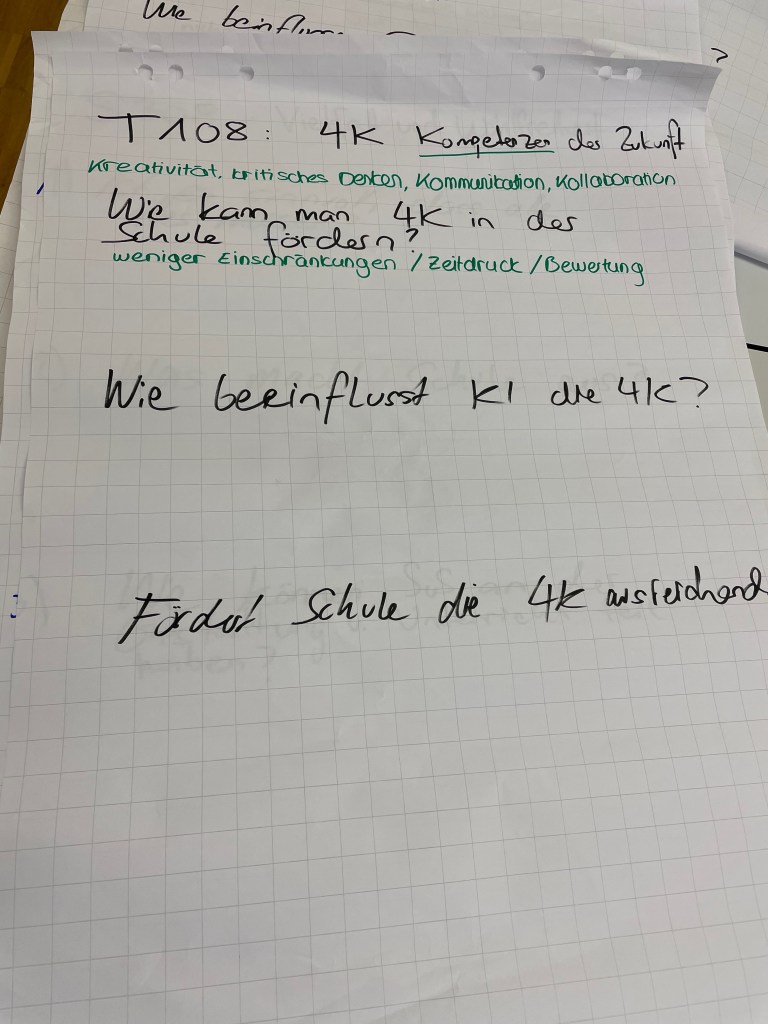 Wie beeinflu
?
T108: 4K Kompetenzen der Zukunft
Kreativität, kritisches Denken, Kommunikation, Kollaboration
Wie kann man 4K in der
Schule fördern?
weniger Einschränkungen / Zeitdruck / Bewertung
Wie beeinflusst KI die 4K?
Fördert Schule die 4K ausreichend